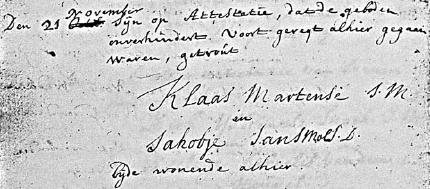 November
Den 21 Zijn op Attestatie, dat de geboden
onverhindert voort geregt alhier gegaan
waren, getrout
Klaas Martense J.M.
en
Jakobje Jansmols. D.
byde wonende alhier.